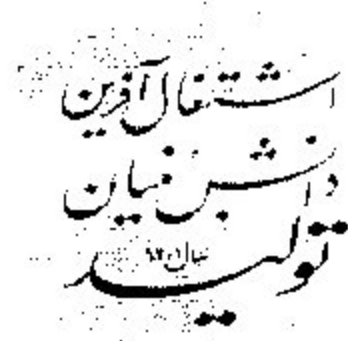 اشتغال آفرین
دانش بنیان
تولید
سال ۱۴۰۱